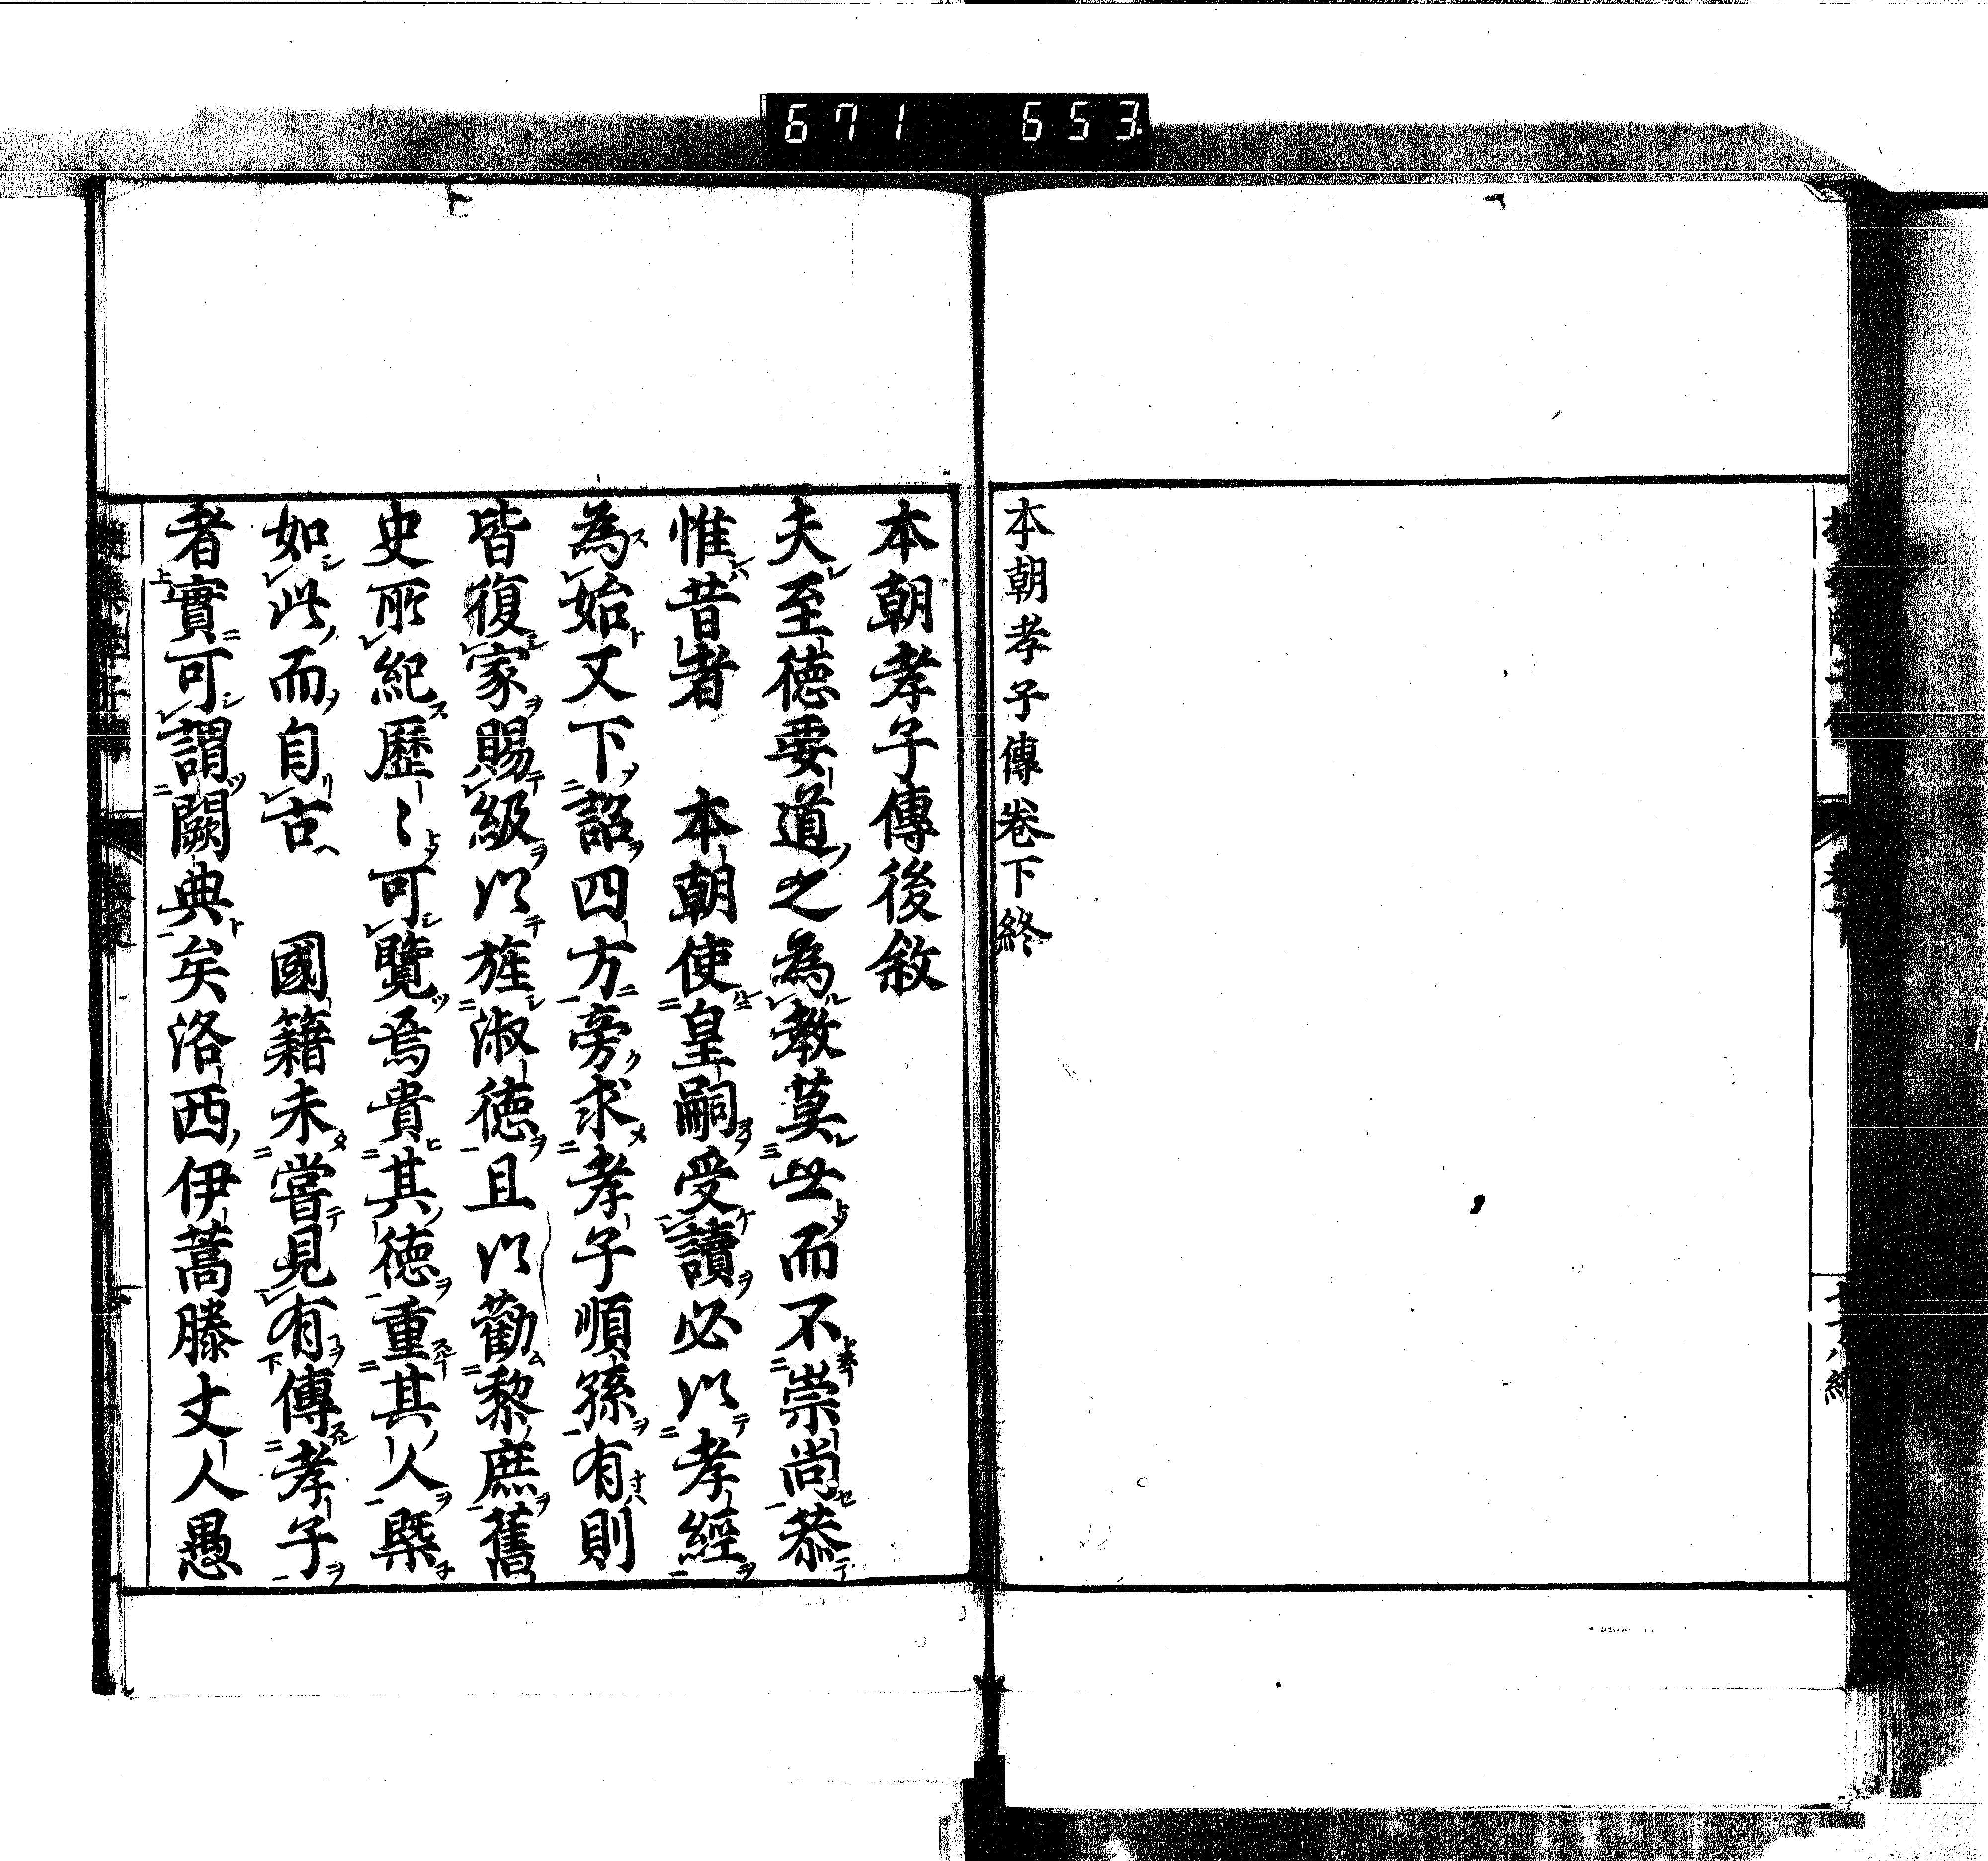 671 653
本朝孝子傳卷下終
本朝孝子傳後敘
夫至德要道之為教莫世而不崇尚恭
惟昔者　本朝使皇嗣受讀必以孝經
為始又下詔四方旁求孝子順孫有則
皆復家賜級以旌淑德且以勸黎庶舊
史所紀歷〻可覽焉貴其德重其人槩
如此而自古　國籍未嘗見有傳孝子
者實可謂闕典矣洛西伊蒿滕丈人愚